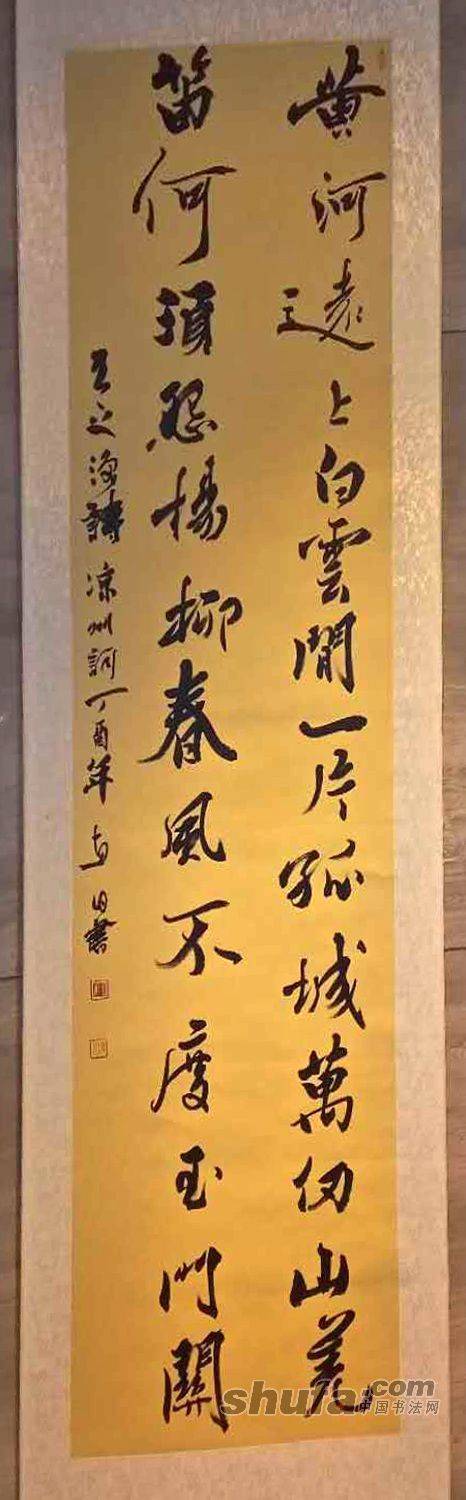 黄河遠上白雲間一片孤城萬仞山羌
笛何須怨楊柳春風不度玉門關
王之渙詩凉州詞丁酉年
書
shufa.com
中国书法网